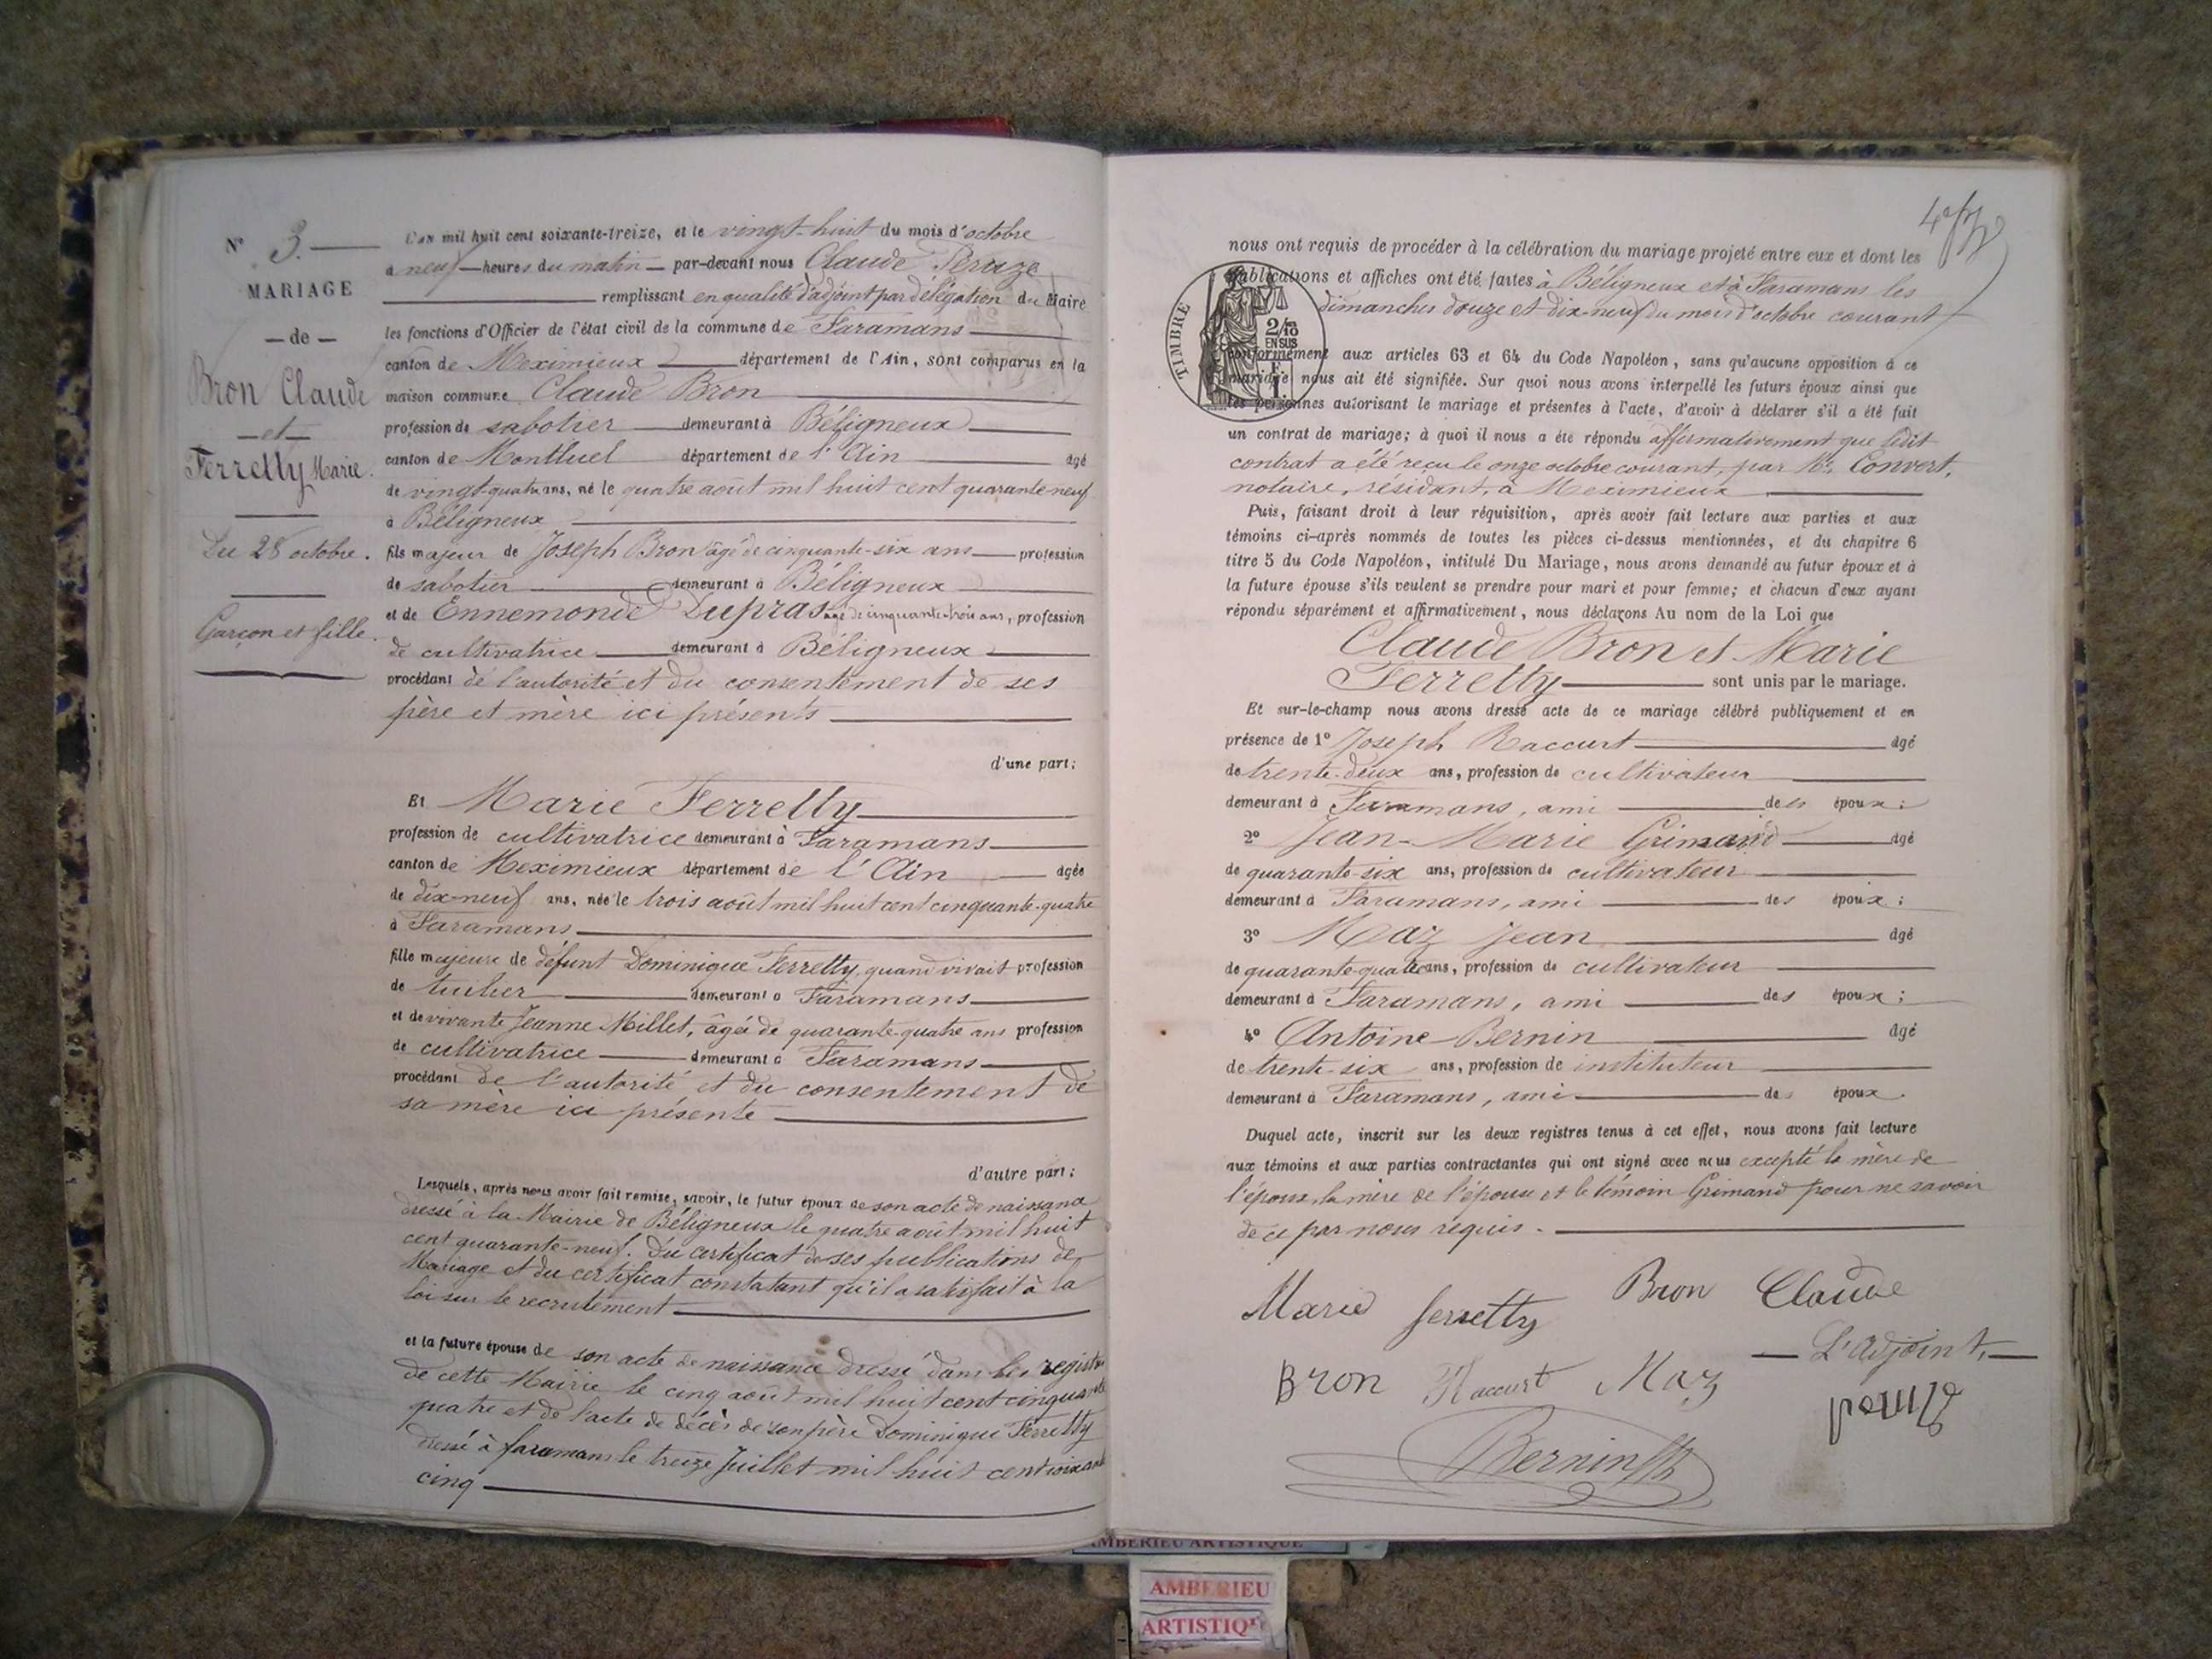 N° 3.
MARIAGE
— de —
Bron Claude
— et —
Ferretty Marie.
Du 28 octobre.
Garçon et fille.
L'an mil huit cent soixante-treize, et le vingt-huit du mois d'octobre
à neuf heures du matin par-devant nous Claude Peraze
remplissant en qualité d'adjoint par délégation du Maire
les fonctions d'Officier de l'état civil de la commune de Faramans
canton de Meximieux département de l'Ain, sont comparus en la
maison commune Claude Bron
profession de sabotier demeurant à Béligneux
canton de Montluel département de l'Ain âgé
de vingt-quatre ans, né le quatre août mil huit cent quarante neuf
à Béligneux
fils majeur de Joseph Bron âgé de cinquante-six ans profession
de sabotier demeurant à Béligneux
et de Ennemonde Dupras âgé de cinquante-trois ans, profession
de cultivatrice demeurant à Béligneux
procédant de l'autorité et du consentement de ses
père et mère ici présents
d'une part;
Et Marie Ferretty
profession de cultivatrice demeurant à Faramans
canton de Meximieux département de l'Ain âgée
de dix-neuf ans, née le trois août mil huit cent cinquante-quatre
à Faramans
fille majeure de défunt Dominique Ferretty, quand vivait profession
de tuilier demeurant à Faramans
et de vivante Jeanne Millet, âgée de quarante-quatre ans profession
de cultivatrice demeurant à Faramans
procédant de l'autorité et du consentement de
sa mère ici présente
d'autre part;
Lesquels, après nous avoir fait remise, savoir, le futur époux de son acte de naissance
dressé à la Mairie de Béligneux le quatre août mil huit
cent quarante-neuf. Du certificat de ses publications de
Mariage et du certificat constatant qu'il a satisfait à la
loi sur le recrutement
et la future épouse de son acte de naissance dressé dans les registres
de cette Mairie le cinq août mil huit cent cinquante
quatre et de l'acte de décès de son père Dominique Ferretty
dressé à faramans le treize Juillet mil huit cent soixante
cinq
nous ont requis de procéder à la célébration du mariage projeté entre eux et dont les
publications et affiches ont été faites à Béligneux et à Faramans les
dimanches douze et dix-neuf du mois d'octobre courant
TIMBRE
2/10
EN SUS
conformément aux articles 63 et 64 du Code Napoléon, sans qu'aucune opposition à ce
mariage nous ait été signifiée. Sur quoi nous avons interpellé les futurs époux ainsi que
les personnes autorisant le mariage et présentes à l'acte, d'avoir à déclarer s'il a été fait
un contrat de mariage; à quoi il nous a été répondu affirmativement que ledit
contrat a été reçu le onze octobre courant, par Me Convert,
notaire, résidant, à Meximieux
Puis, faisant droit à leur réquisition, après avoir fait lecture aux parties et aux
témoins ci-après nommés de toutes les pièces ci-dessus mentionnées, et du chapitre 6
titre 5 du Code Napoléon, intitulé Du Mariage, nous avons demandé au futur époux et à
la future épouse s'ils veulent se prendre pour mari et pour femme; et chacun d'eux ayant
répondu séparément et affirmativement, nous déclarons Au nom de la Loi que
Claude Bron et Marie
Ferretty sont unis par le mariage.
Et sur-le-champ nous avons dressé acte de ce mariage célébré publiquement et en
présence de 1° Joseph Raccurt âgé
de trente-deux ans, profession de cultivateur
demeurant à Faramans, ami des époux;
2° Jean-Marie Grimand âgé
de quarante-six ans, profession de cultivateur
demeurant à Faramans, ami des époux;
3° Maz Jean âgé
de quarante-quatre ans, profession de cultivateur
demeurant à Faramans, ami des époux;
4° Antoine Bernin âgé
de trente-six ans, profession de instituteur
demeurant à Faramans, ami des époux.
Duquel acte, inscrit sur les deux registres tenus à cet effet, nous avons fait lecture
aux témoins et aux parties contractantes qui ont signé avec nous excepté la mère de
l'époux, la mère de l'épouse et le témoin Grimand pour ne savoir
de ce par nous requis.
Marie ferretty Bron Claude
L'Adjoint,
Bron Raccurt Maz
Bernin
AMBERIEU ARTISTIQUE
AMBERIEU
ARTISTIQ